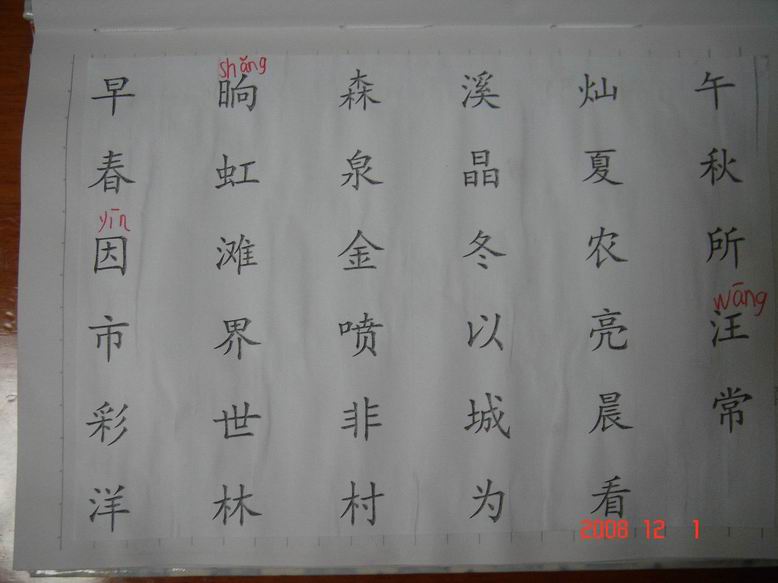 shǎng
早 晌 森 溪 灿 午
春 虹 泉 晶 夏 秋
yīn
因 滩 金 冬 农 所
wāng
市 界 喷 以 亮 汪
彩 世 非 城 晨 常
洋 林 村 为 看
2008 12 1